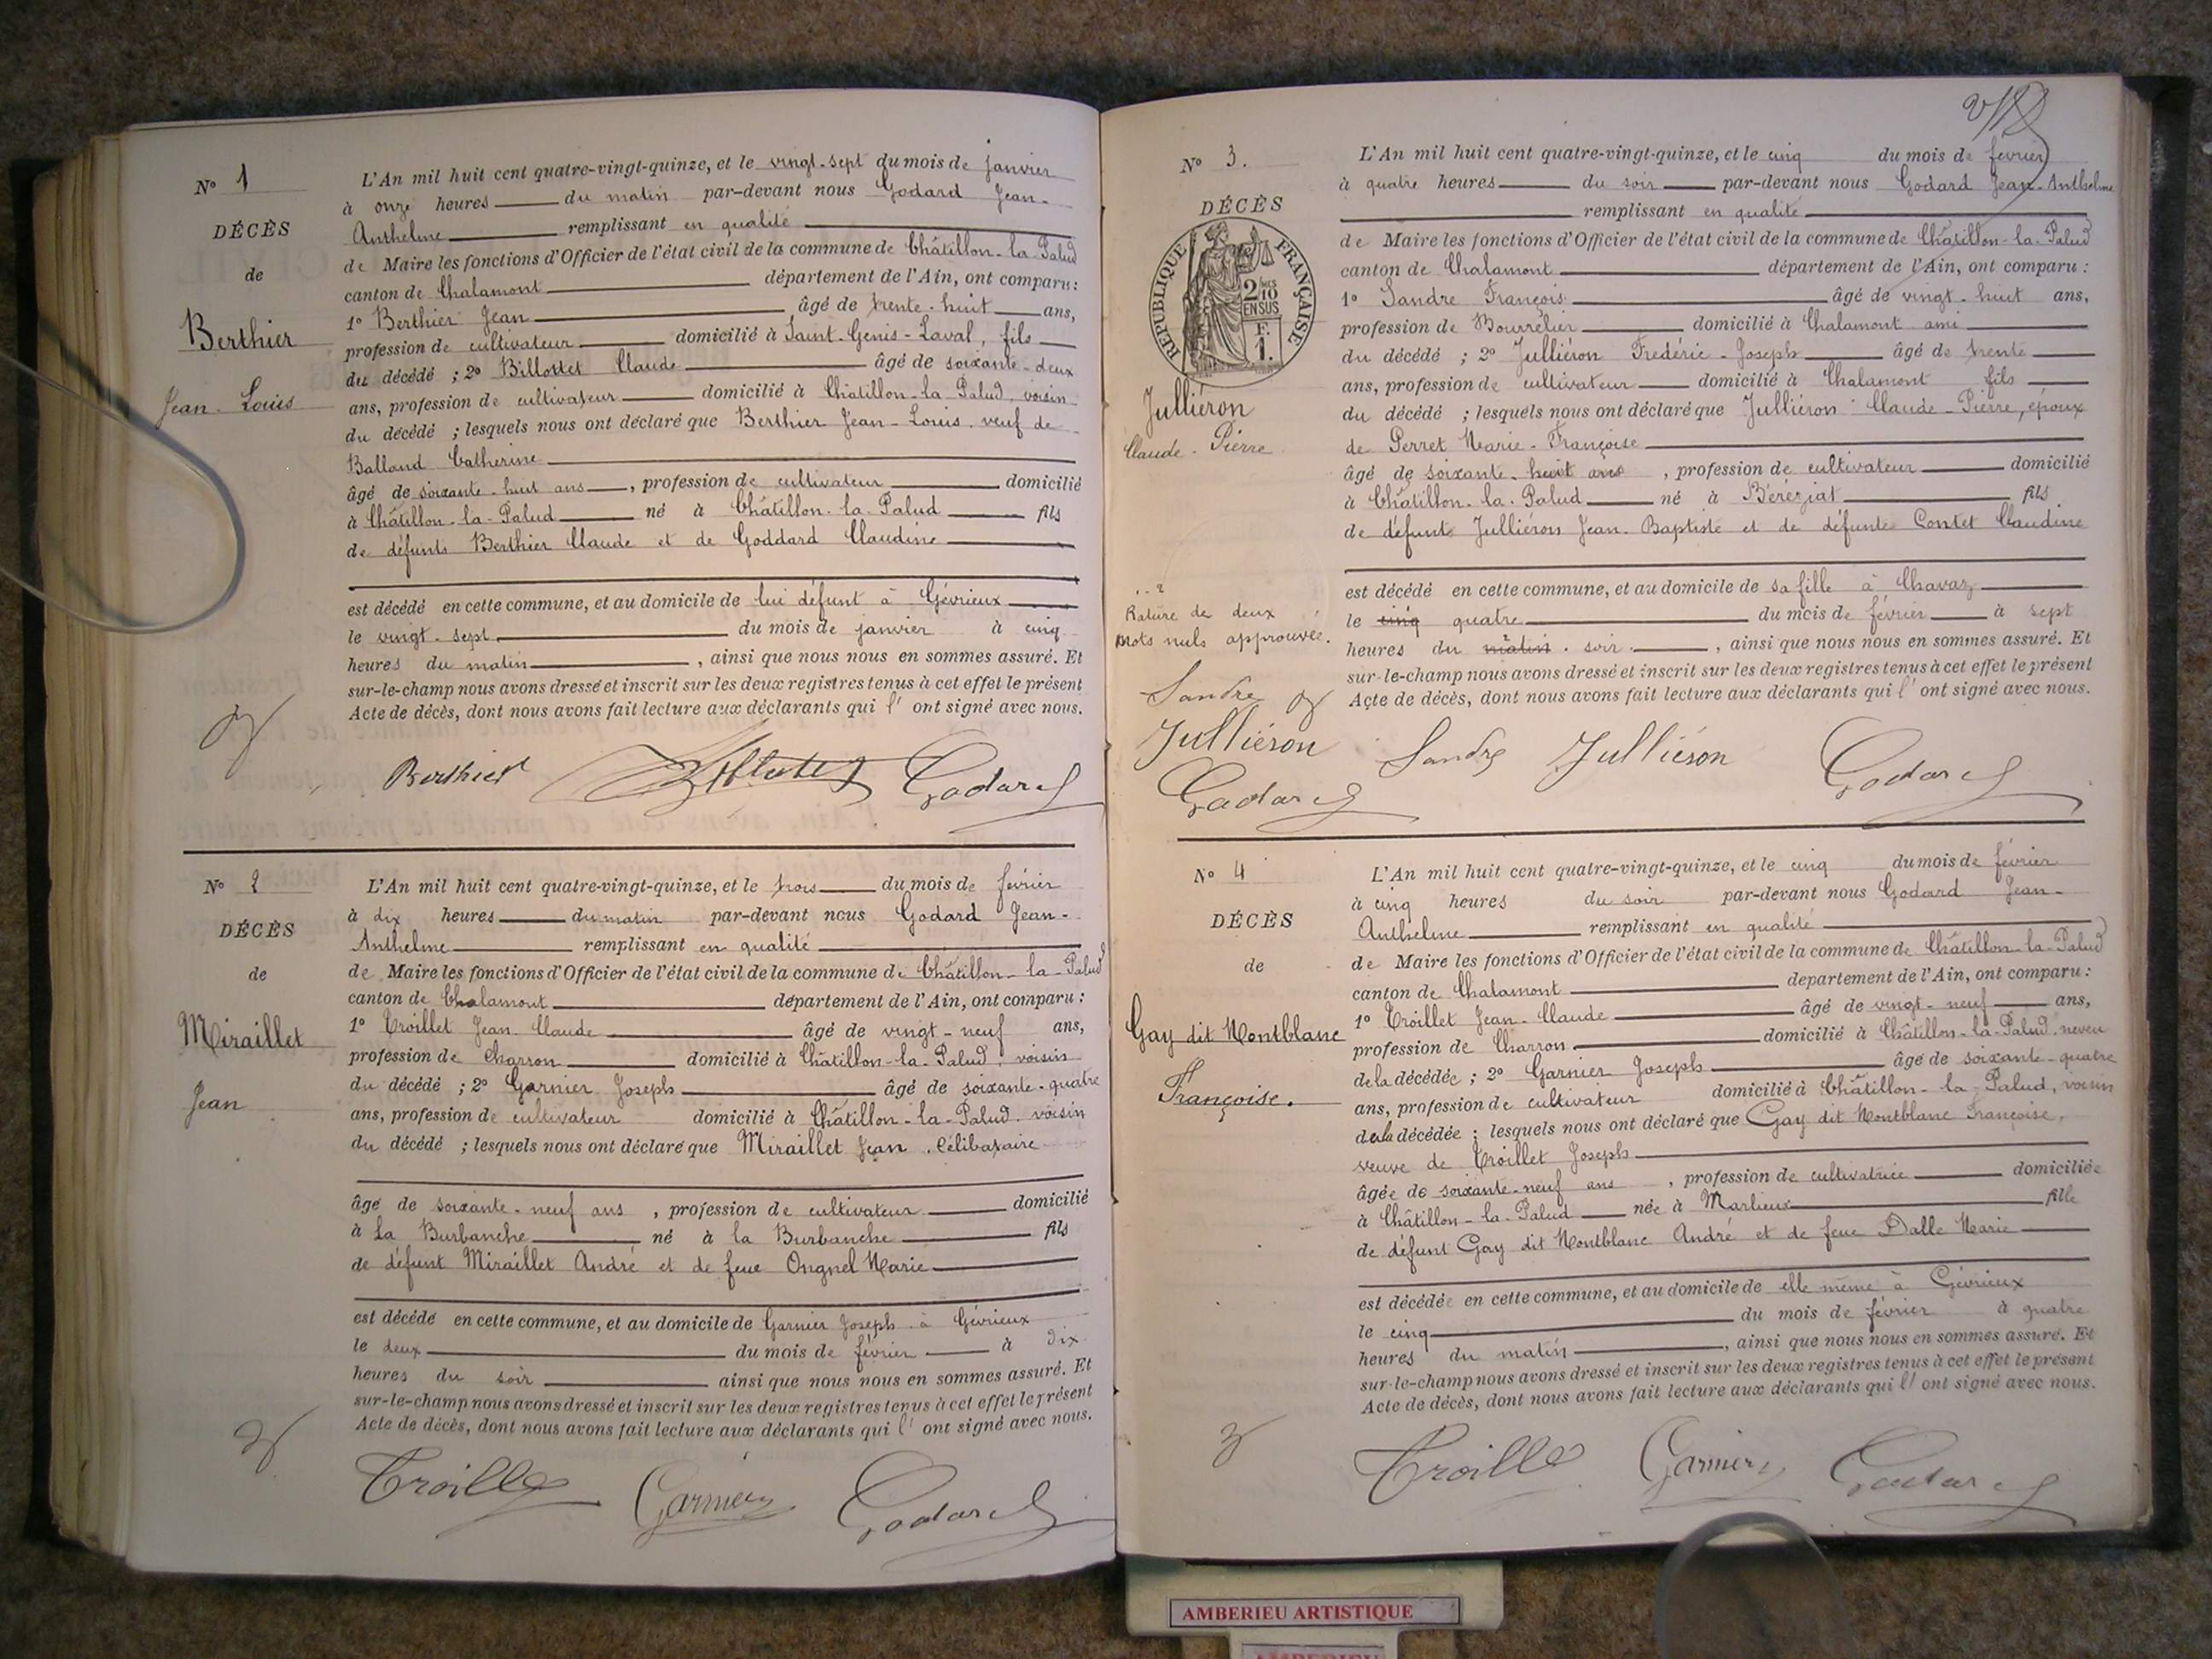 Nº 1
DÉCÈS
de
Berthier
Jean-Louis
L'An mil huit cent quatre-vingt-quinze, et le vingt-sept du mois de janvier
à onze heures du matin par-devant nous Godard Jean-
Anthelme remplissant en qualité
de Maire les fonctions d'Officier de l'état civil de la commune de Châtillon-la-Palud
canton de Chalamont département de l'Ain, ont comparu :
1º Berthier Jean âgé de trente-huit ans,
profession de cultivateur domicilié à Saint-Genis-Laval, fils
du décédé ; 2º Billottet Claude âgé de soixante-deux
ans, profession de cultivateur domicilié à Châtillon-la-Palud, voisin
du décédé ; lesquels nous ont déclaré que Berthier Jean-Louis, veuf de
Balland Catherine
âgé de soixante-huit ans, profession de cultivateur domicilié
à Châtillon-la-Palud né à Châtillon-la-Palud fils
de défunts Berthier Claude et de Goddard Claudine
est décédé en cette commune, et au domicile de lui défunt à Gévrieux
le vingt-sept du mois de janvier à cinq
heures du matin, ainsi que nous nous en sommes assuré. Et
sur-le-champ nous avons dressé et inscrit sur les deux registres tenus à cet effet le présent
Acte de décès, dont nous avons fait lecture aux déclarants qui l'ont signé avec nous.
Berthier Godard
Nº 2
DÉCÈS
de
Miraillet
Jean
L'An mil huit cent quatre-vingt-quinze, et le trois du mois de février
à dix heures du matin par-devant nous Godard Jean-
Anthelme remplissant en qualité
de Maire les fonctions d'Officier de l'état civil de la commune de Châtillon-la-Palud
canton de Chalamont département de l'Ain, ont comparu :
1º Troillet Jean-Claude âgé de vingt-neuf ans,
profession de Charron domicilié à Châtillon-la-Palud, voisin
du décédé ; 2º Garnier Joseph âgé de soixante-quatre
ans, profession de cultivateur domicilié à Châtillon-la-Palud. voisin
du décédé ; lesquels nous ont déclaré que Miraillet Jean, célibataire
âgé de soixante-neuf ans, profession de cultivateur domicilié
à La Burbanche né à la Burbanche fils
de défunt Miraillet André et de feue Ongnel Marie
est décédé en cette commune, et au domicile de Garnier Joseph à Gévrieux
le deux du mois de février à dix
heures du soir ainsi que nous nous en sommes assuré. Et
sur-le-champ nous avons dressé et inscrit sur les deux registres tenus à cet effet le présent
Acte de décès, dont nous avons fait lecture aux déclarants qui l'ont signé avec nous.
Troillet Garnier Godard
Nº 3.
DÉCÈS
RÉPUBLIQUE FRANÇAISE
2/10 EN SUS
F. 1.
Julliéron
Claude-Pierre
L'An mil huit cent quatre-vingt-quinze, et le cinq du mois de février
à quatre heures du soir par-devant nous Godard Jean-Anthelme
remplissant en qualité
de Maire les fonctions d'Officier de l'état civil de la commune de Châtillon-la-Palud
canton de Chalamont département de l'Ain, ont comparu :
1º Sandre François âgé de vingt-huit ans,
profession de Bourrelier domicilié à Chalamont ami
du décédé ; 2º Julliéron Frédéric-Joseph âgé de trente
ans, profession de cultivateur domicilié à Chalamont fils
du décédé ; lesquels nous ont déclaré que Julliéron Claude-Pierre, époux
de Perret Marie-Françoise
âgé de soixante-huit ans, profession de cultivateur domicilié
à Châtillon-la-Palud né à Béréziat fils
de défunt Julliéron Jean-Baptiste et de défunte Contet Claudine
est décédé en cette commune, et au domicile de sa fille à Chavaz
le cinq quatre du mois de février à sept
heures du matin. soir, ainsi que nous nous en sommes assuré. Et
sur-le-champ nous avons dressé et inscrit sur les deux registres tenus à cet effet le présent
Acte de décès, dont nous avons fait lecture aux déclarants qui l'ont signé avec nous.
Rature de deux
mots nuls approuvée.
Sandre
Julliéron
Godard
Sandre Julliéron Godard
Nº 4
DÉCÈS
de
Gay dit Montblanc
Françoise.
L'An mil huit cent quatre-vingt-quinze, et le cinq du mois de février
à cinq heures du soir par-devant nous Godard Jean-
Anthelme remplissant en qualité
de Maire les fonctions d'Officier de l'état civil de la commune de Châtillon-la-Palud
canton de Chalamont departement de l'Ain, ont comparu :
1º Troillet Jean-Claude âgé de vingt-neuf ans,
profession de Charron domicilié à Châtillon-la-Palud, neveu
de la décédée ; 2º Garnier Joseph âgé de soixante-quatre
ans, profession de cultivateur domicilié à Châtillon-la-Palud, voisin
de la décédée ; lesquels nous ont déclaré que Gay dit Montblanc Françoise,
veuve de Troillet Joseph
âgée de soixante-neuf ans, profession de cultivatrice domiciliée
à Châtillon-la-Palud née à Marlieux fille
de défunt Gay dit Montblanc André et de feue Dalle Marie
est décédée en cette commune, et au domicile de elle même à Gévrieux
le cinq du mois de février à quatre
heures du matin, ainsi que nous nous en sommes assuré. Et
sur-le-champ nous avons dressé et inscrit sur les deux registres tenus à cet effet le présent
Acte de décès, dont nous avons fait lecture aux déclarants qui l'ont signé avec nous.
Troillet Garnier Godard
AMBERIEU ARTISTIQUE
AMBERIEU